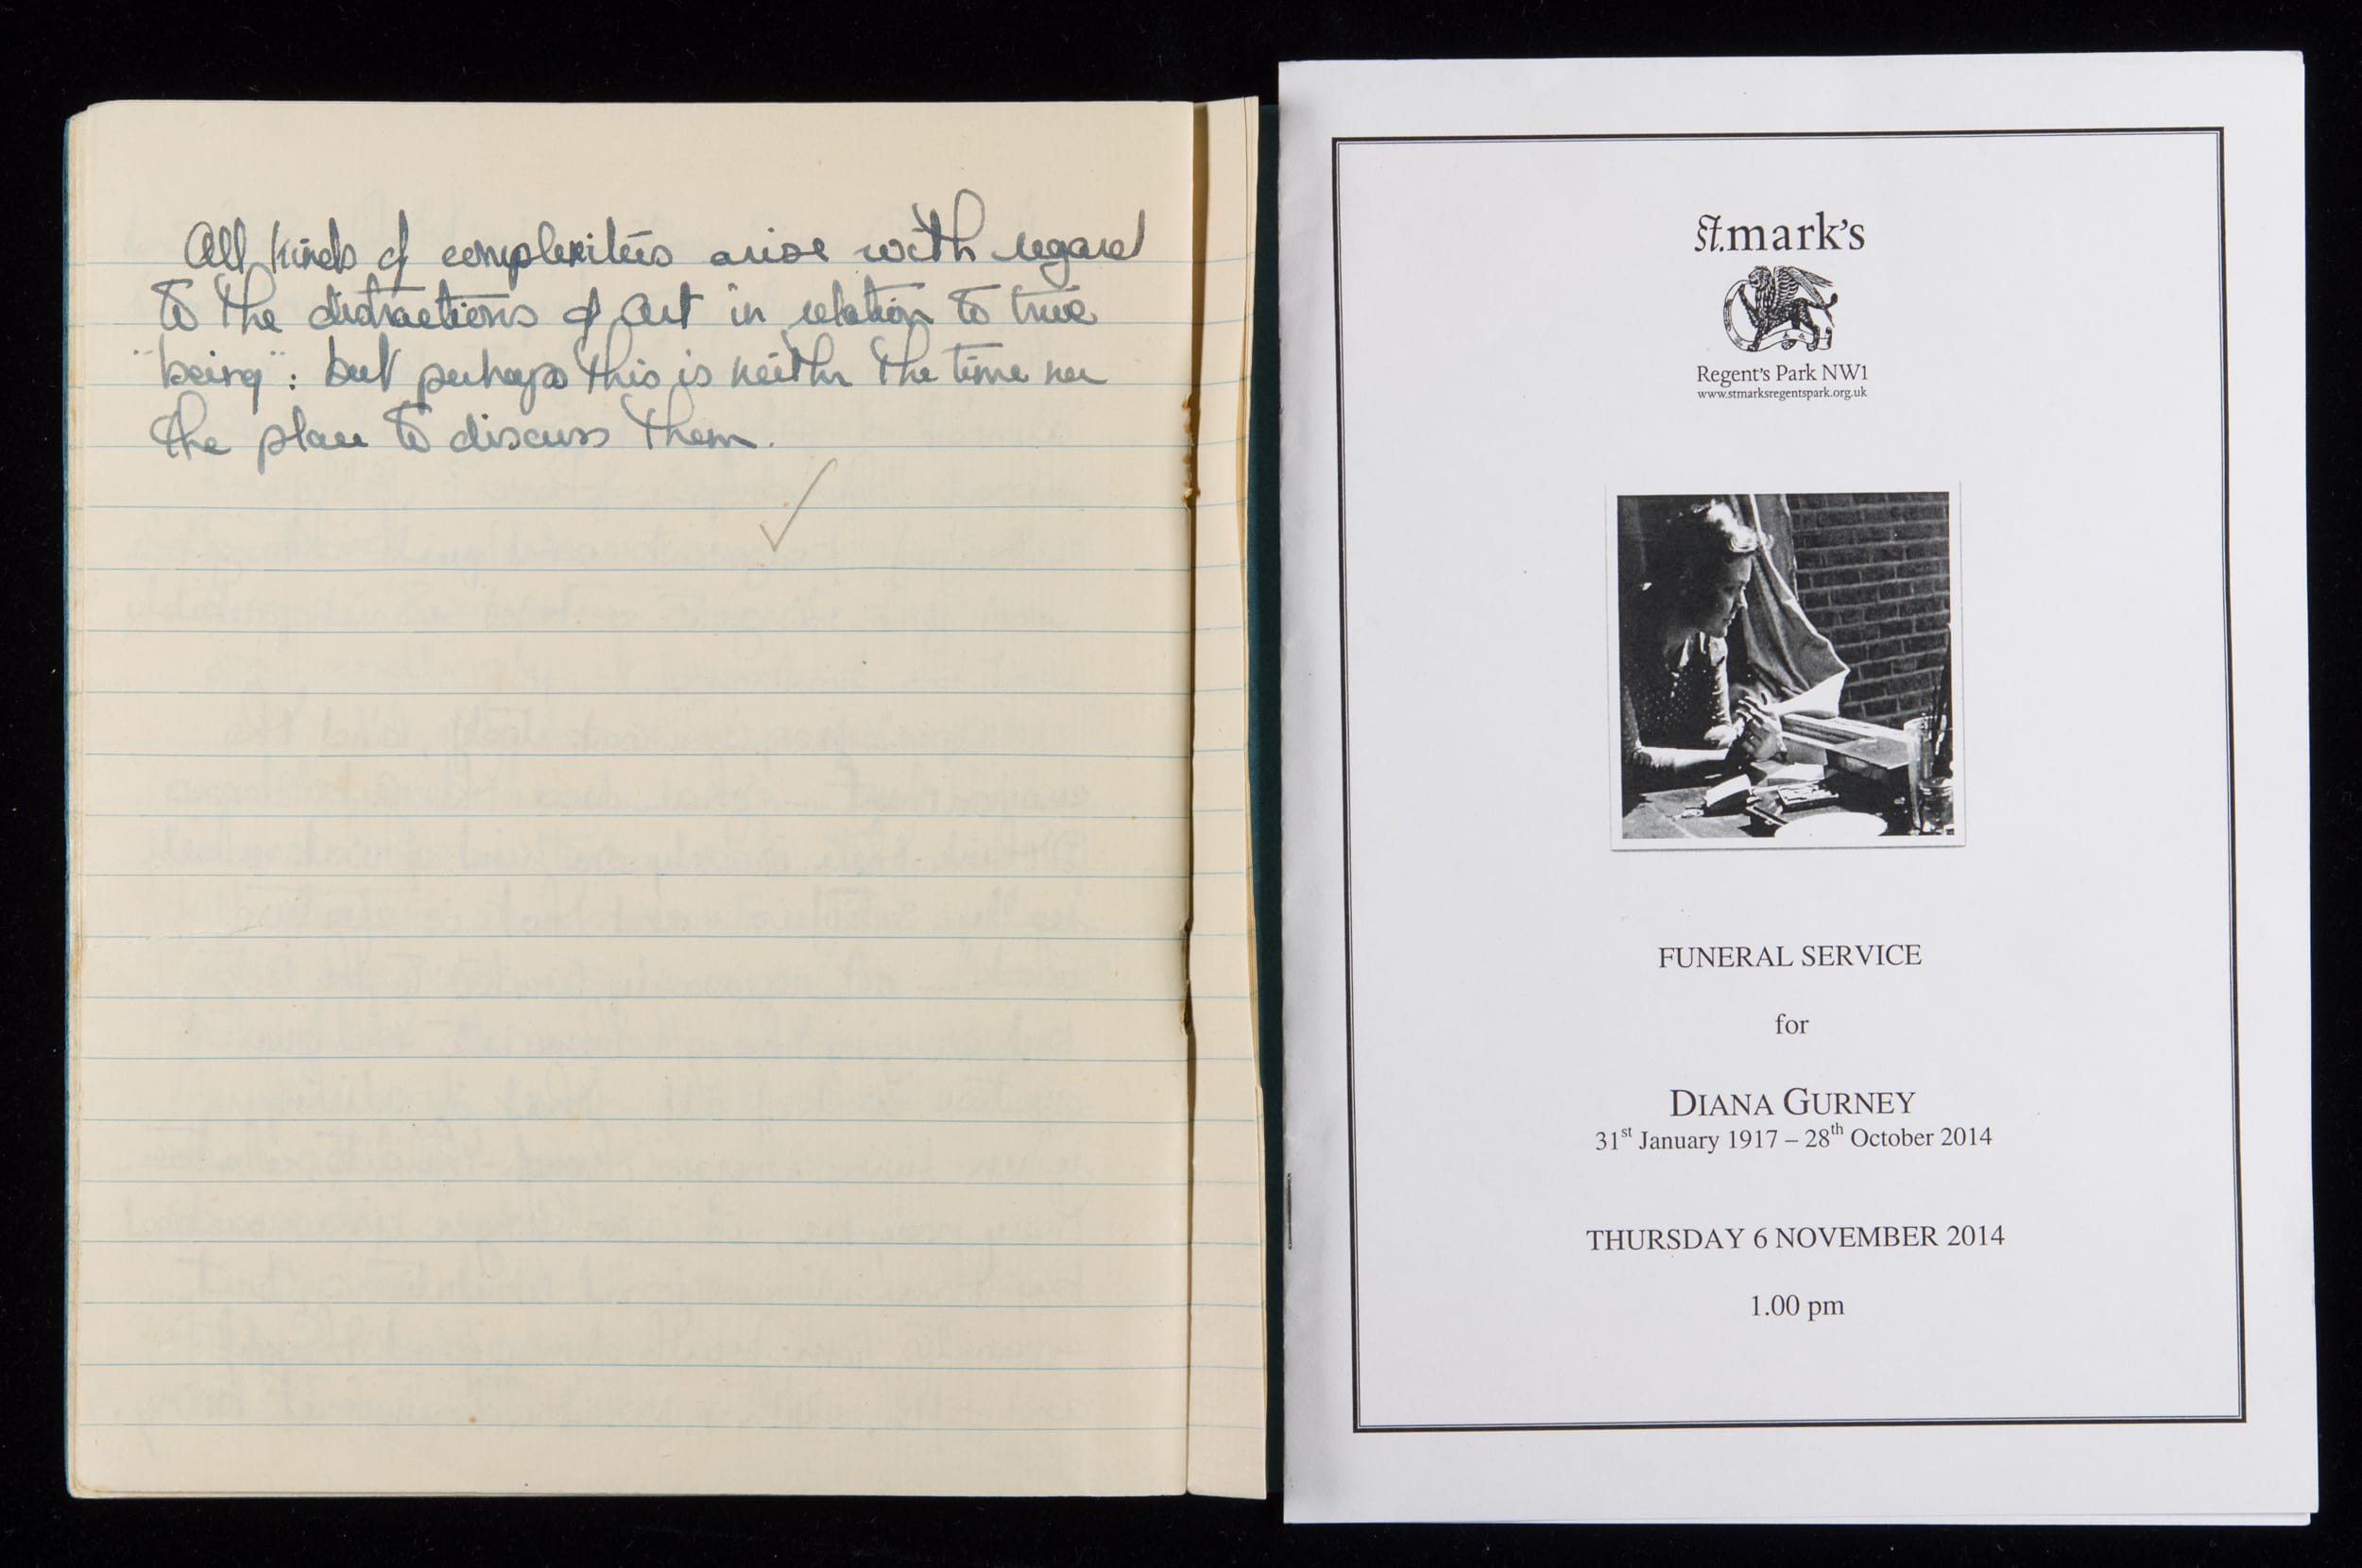 All kinds of complexities arise with regard
to the distractions of art in relation to true
"being": but perhaps this is neither the time nor
the place to discuss them.
St.mark's
Regent's Park NW1
www.stmarksregentspark.org.uk
FUNERAL SERVICE
for
DIANA GURNEY
31st January 1917 – 28th October 2014
THURSDAY 6 NOVEMBER 2014
1.00 pm